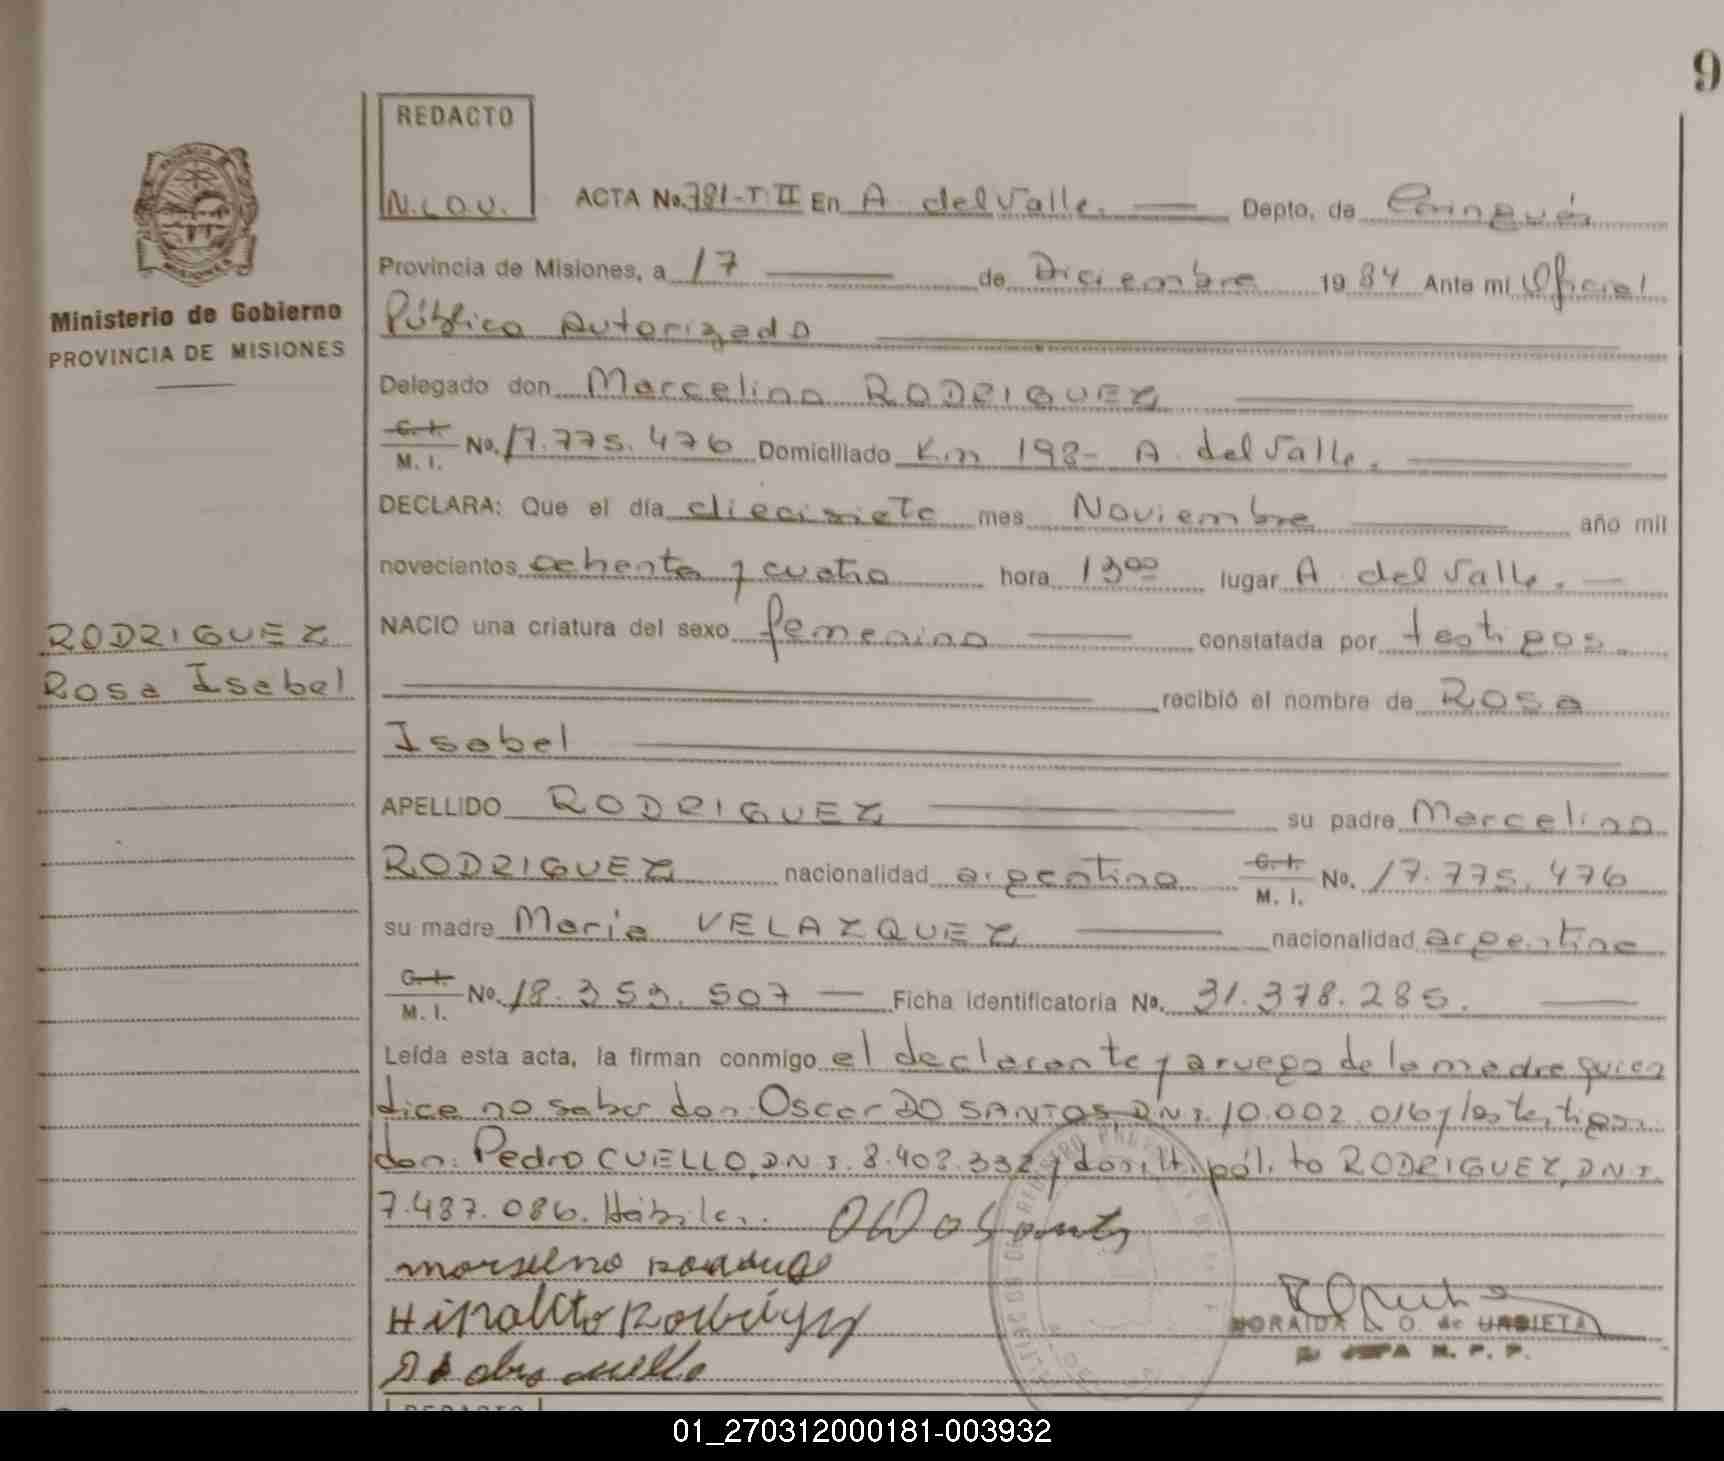 9
REDACTO
N.L.O.U.
ACTA No. 781-T II En A. del Valle. Depto. de Cainguás
Provincia de Misiones, a 17 de Diciembre 1984 Ante mi Oficial
Público Autorizado
Ministerio de Gobierno
PROVINCIA DE MISIONES
Delegado don Marcelino RODRIGUEZ
C. I. M. I. No. 17.775.476 Domiciliado Km 198- A. del Valle.
DECLARA: Que el día diecisiete mes Noviembre año mil
novecientos ochenta y cuatro hora 13⁰⁰ lugar A. del Valle.
NACIO una criatura del sexo femenino constatada por testigos.
RODRIGUEZ
Rosa Isabel
recibió el nombre de Rosa
Isabel
APELLIDO RODRIGUEZ su padre Marcelino
RODRIGUEZ nacionalidad argentina C. I. M. I. No. 17.775.476
su madre Maria VELAZQUEZ nacionalidad argentina
C. I. M. I. No. 18.353.507 Ficha identificatoria No. 31.378.285.
Leída esta acta, la firman conmigo el declarante y a ruego de la madre quien
dice no saber don: Oscar DO SANTOS, D.N.I. 10.002.016 y los testigos
don: Pedro CUELLO, D.N.I. 8.408.332 y don: Hipólito RODRIGUEZ, D.N.I.
7.487.086. Hábiles.
NORAIDA L. O. de URBIETA
JEFA R. P. P.
REDACTO
01_270312000181-003932